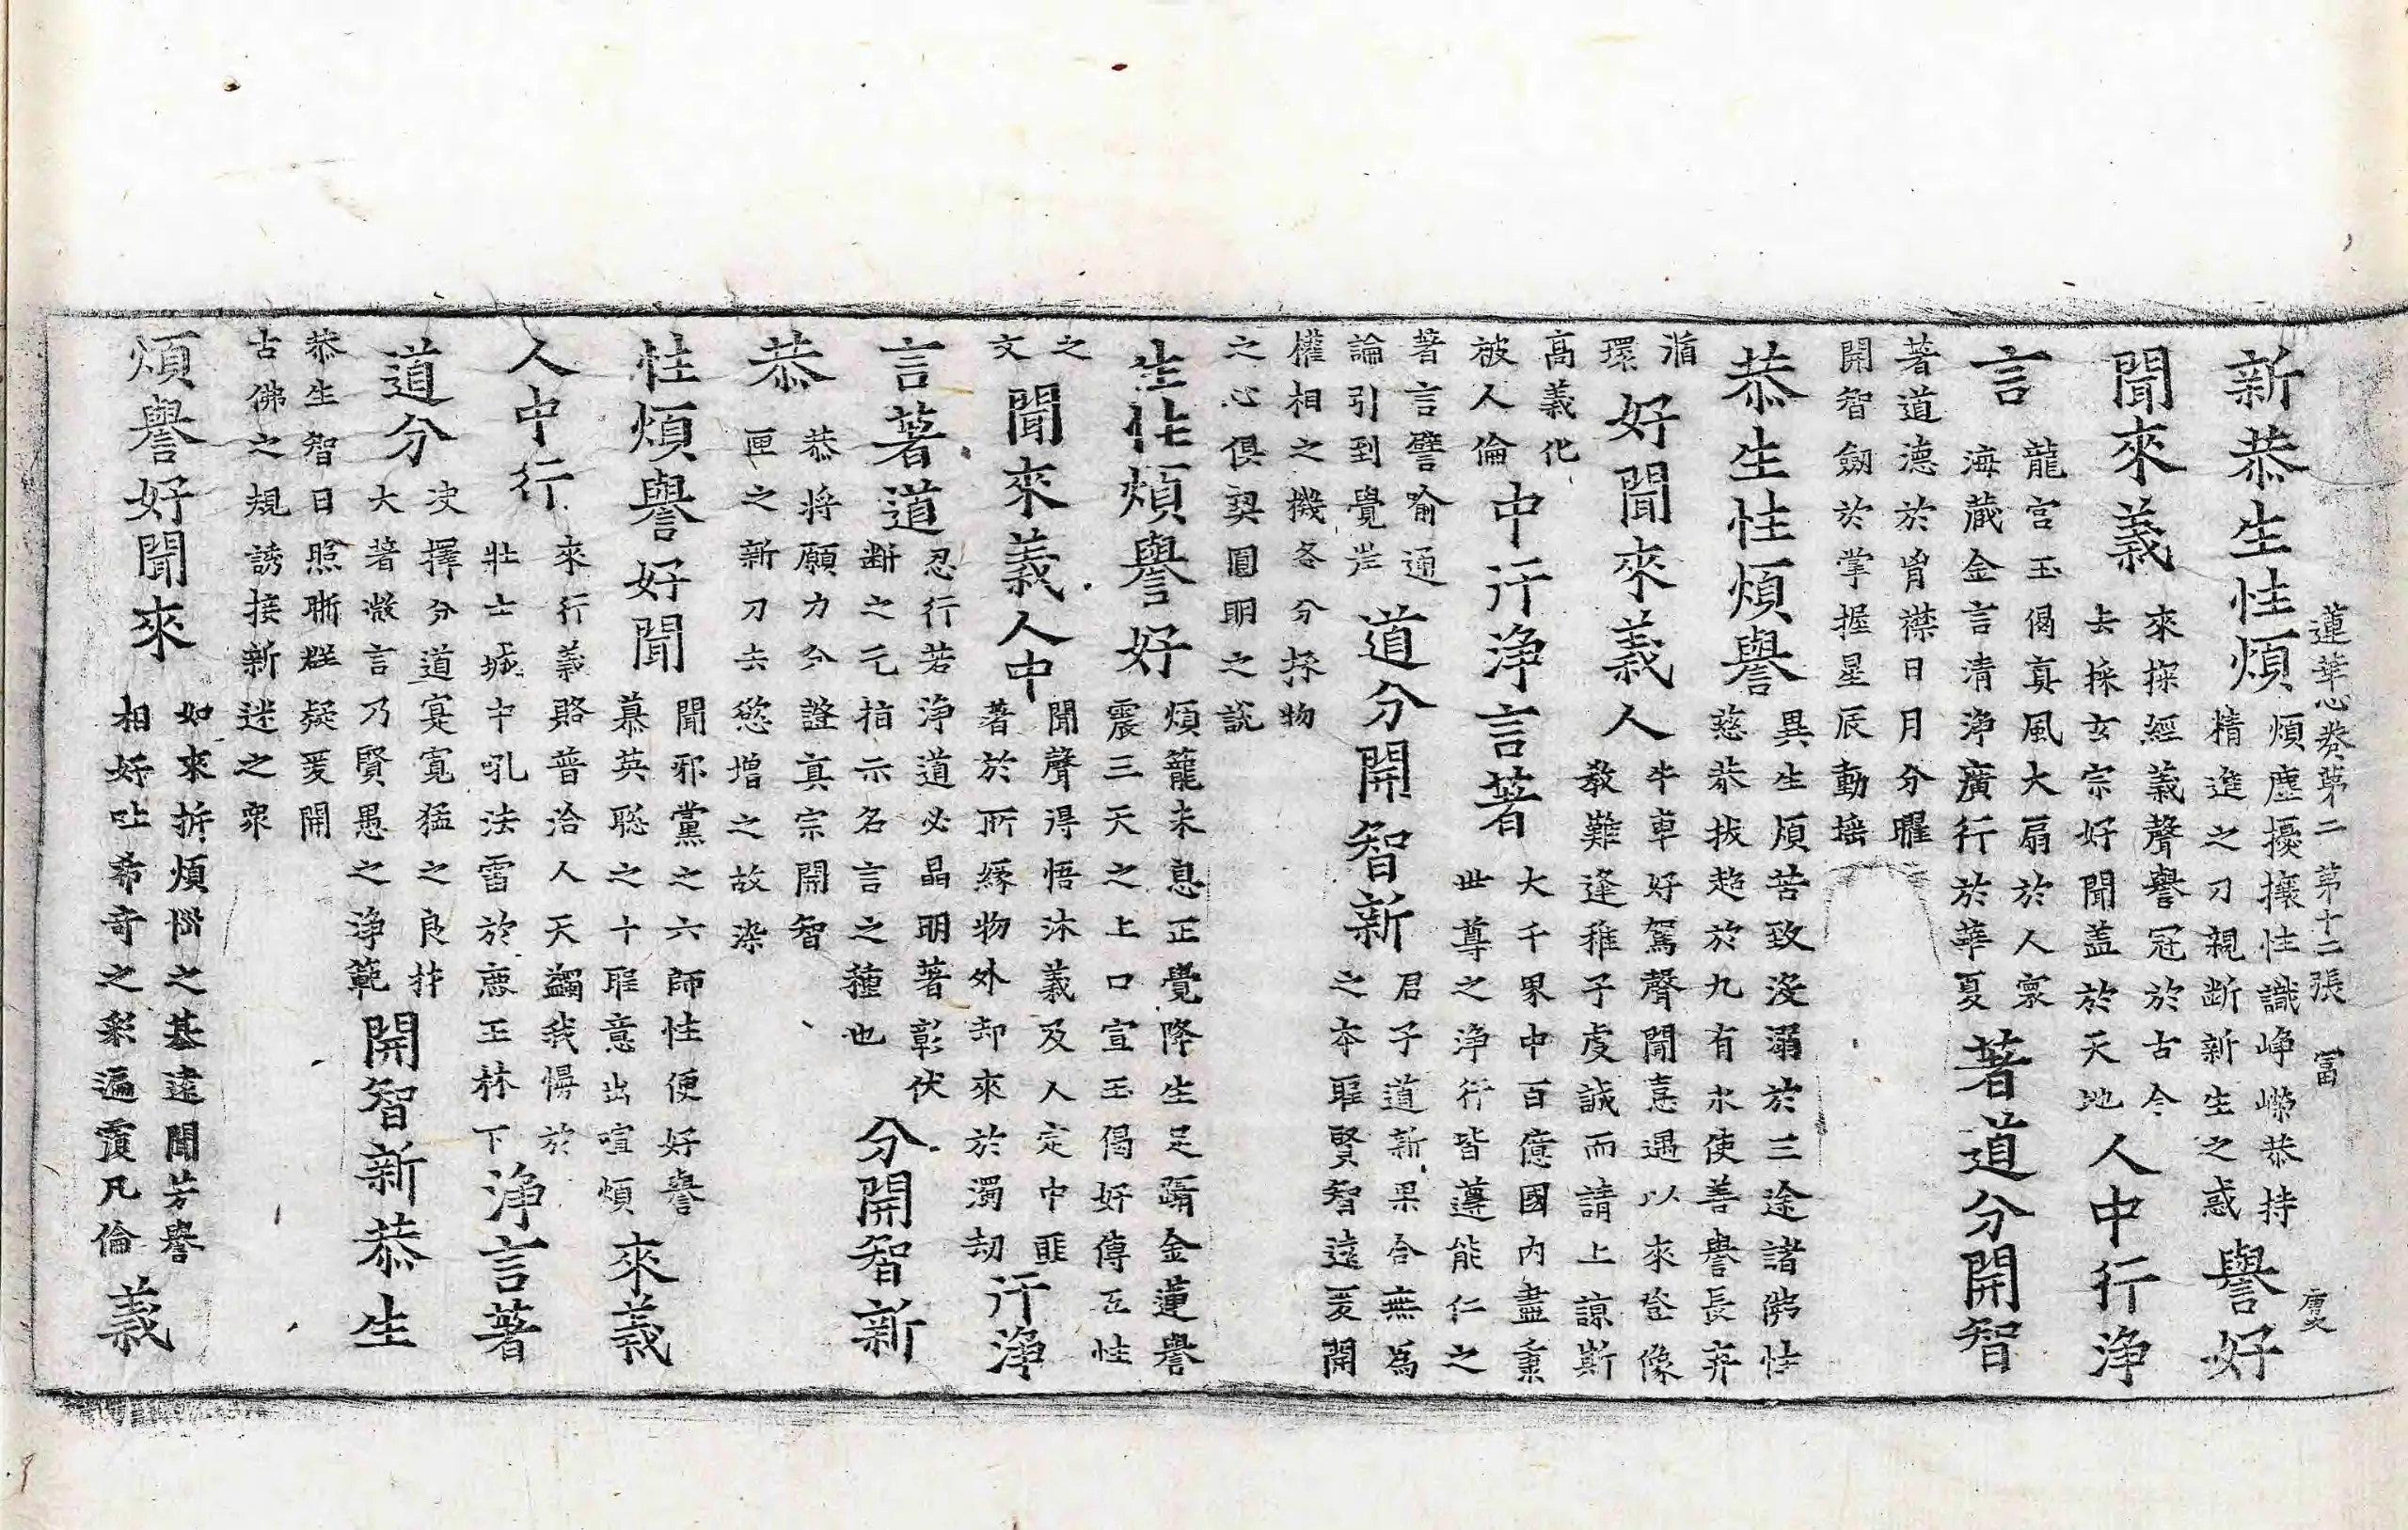 蓮華心卷第二 第十二張 冨
新恭生性煩
煩塵擾攘性識崢嶸恭持
精進之刀親斷新生之惑
譽好
聞來義
來探經義聲譽冠於古今
去採玄宗好聞盖於天地
人中行淨
言
龍宮玉偈真風大扇於人寰
海藏金言清淨廣行於華夏
著道分開智
著道德於胷襟日月分曜
開智劒於掌握星辰動搖
恭生性煩譽
異生煩苦致沒溺於三途諸佛性
慈恭拔趂於九有永使善譽長弃
循
環
好聞來義人
牛車好駕聲聞憙遇以來登像
教難逢稚子虔誠而請上諒斯
高義化
被人倫
中行淨言著
大千界中百億國內盡重
世尊之淨行皆遵能仁之
著言譬喻通
論引到覺岸
道分開智新
君子道新果合無為
之本聖賢智遠爰開
權相之機各分採物
之心俱契圓明之說
生性煩譽好
煩籠未息正覺降生足躡金蓮譽
震三天之上口宣玉偈好傳五性
之
文
聞來義人中
聞聲得悟沐義及人定中匪
著於所緣物外却來於濁劫
行淨
言著道
忍行若淨道必晶明著彰伏
斷之元指示名言之種也
分開智新
恭
恭將願力分證真宗開智
匣之新刀去慾增之故染
性煩譽好聞
聞邪黨之六師性便好譽
慕英聰之十聖意出喧煩
來義
人中行
來行義賂普洽人天蠲我慢於
壯士城中吼法雷於鹿王林下
淨言著
道分
次擇分道寔寬猛之良
大著微言乃賢愚之淨範
開智新恭生
恭生智日照晰群疑爰開
古佛之規誘接新迷之衆
煩譽好聞來
如來折煩惱之基遠聞芳譽
相好吐希奇之彩遍覆凡倫
義